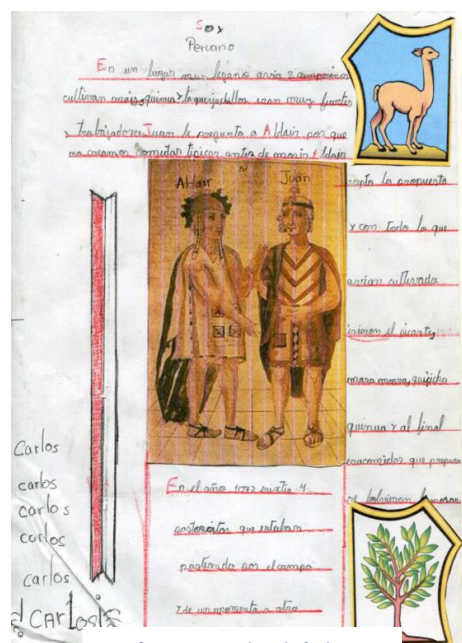 Soy
Peruano
En un lugar muy lejano avia 2 campesinos
cultivan maiz, quinua y la ellos eran muy fuertes
y trabajadores Juan le pregunta a Aldair por que
no creamos comidas tipicas antes de morir Aldair
Aldair Juan
acepta la propuesta
y con todo lo que
avian cultivado
isieron el picante,
quinua y al final
comidas que prepara
se bolvieron
En el año 1 4
pastorcitos que estaban
pasteando por el campo
y de un momento a otro
Carlos
carlos
carlos
carlos
carlos
CARlos